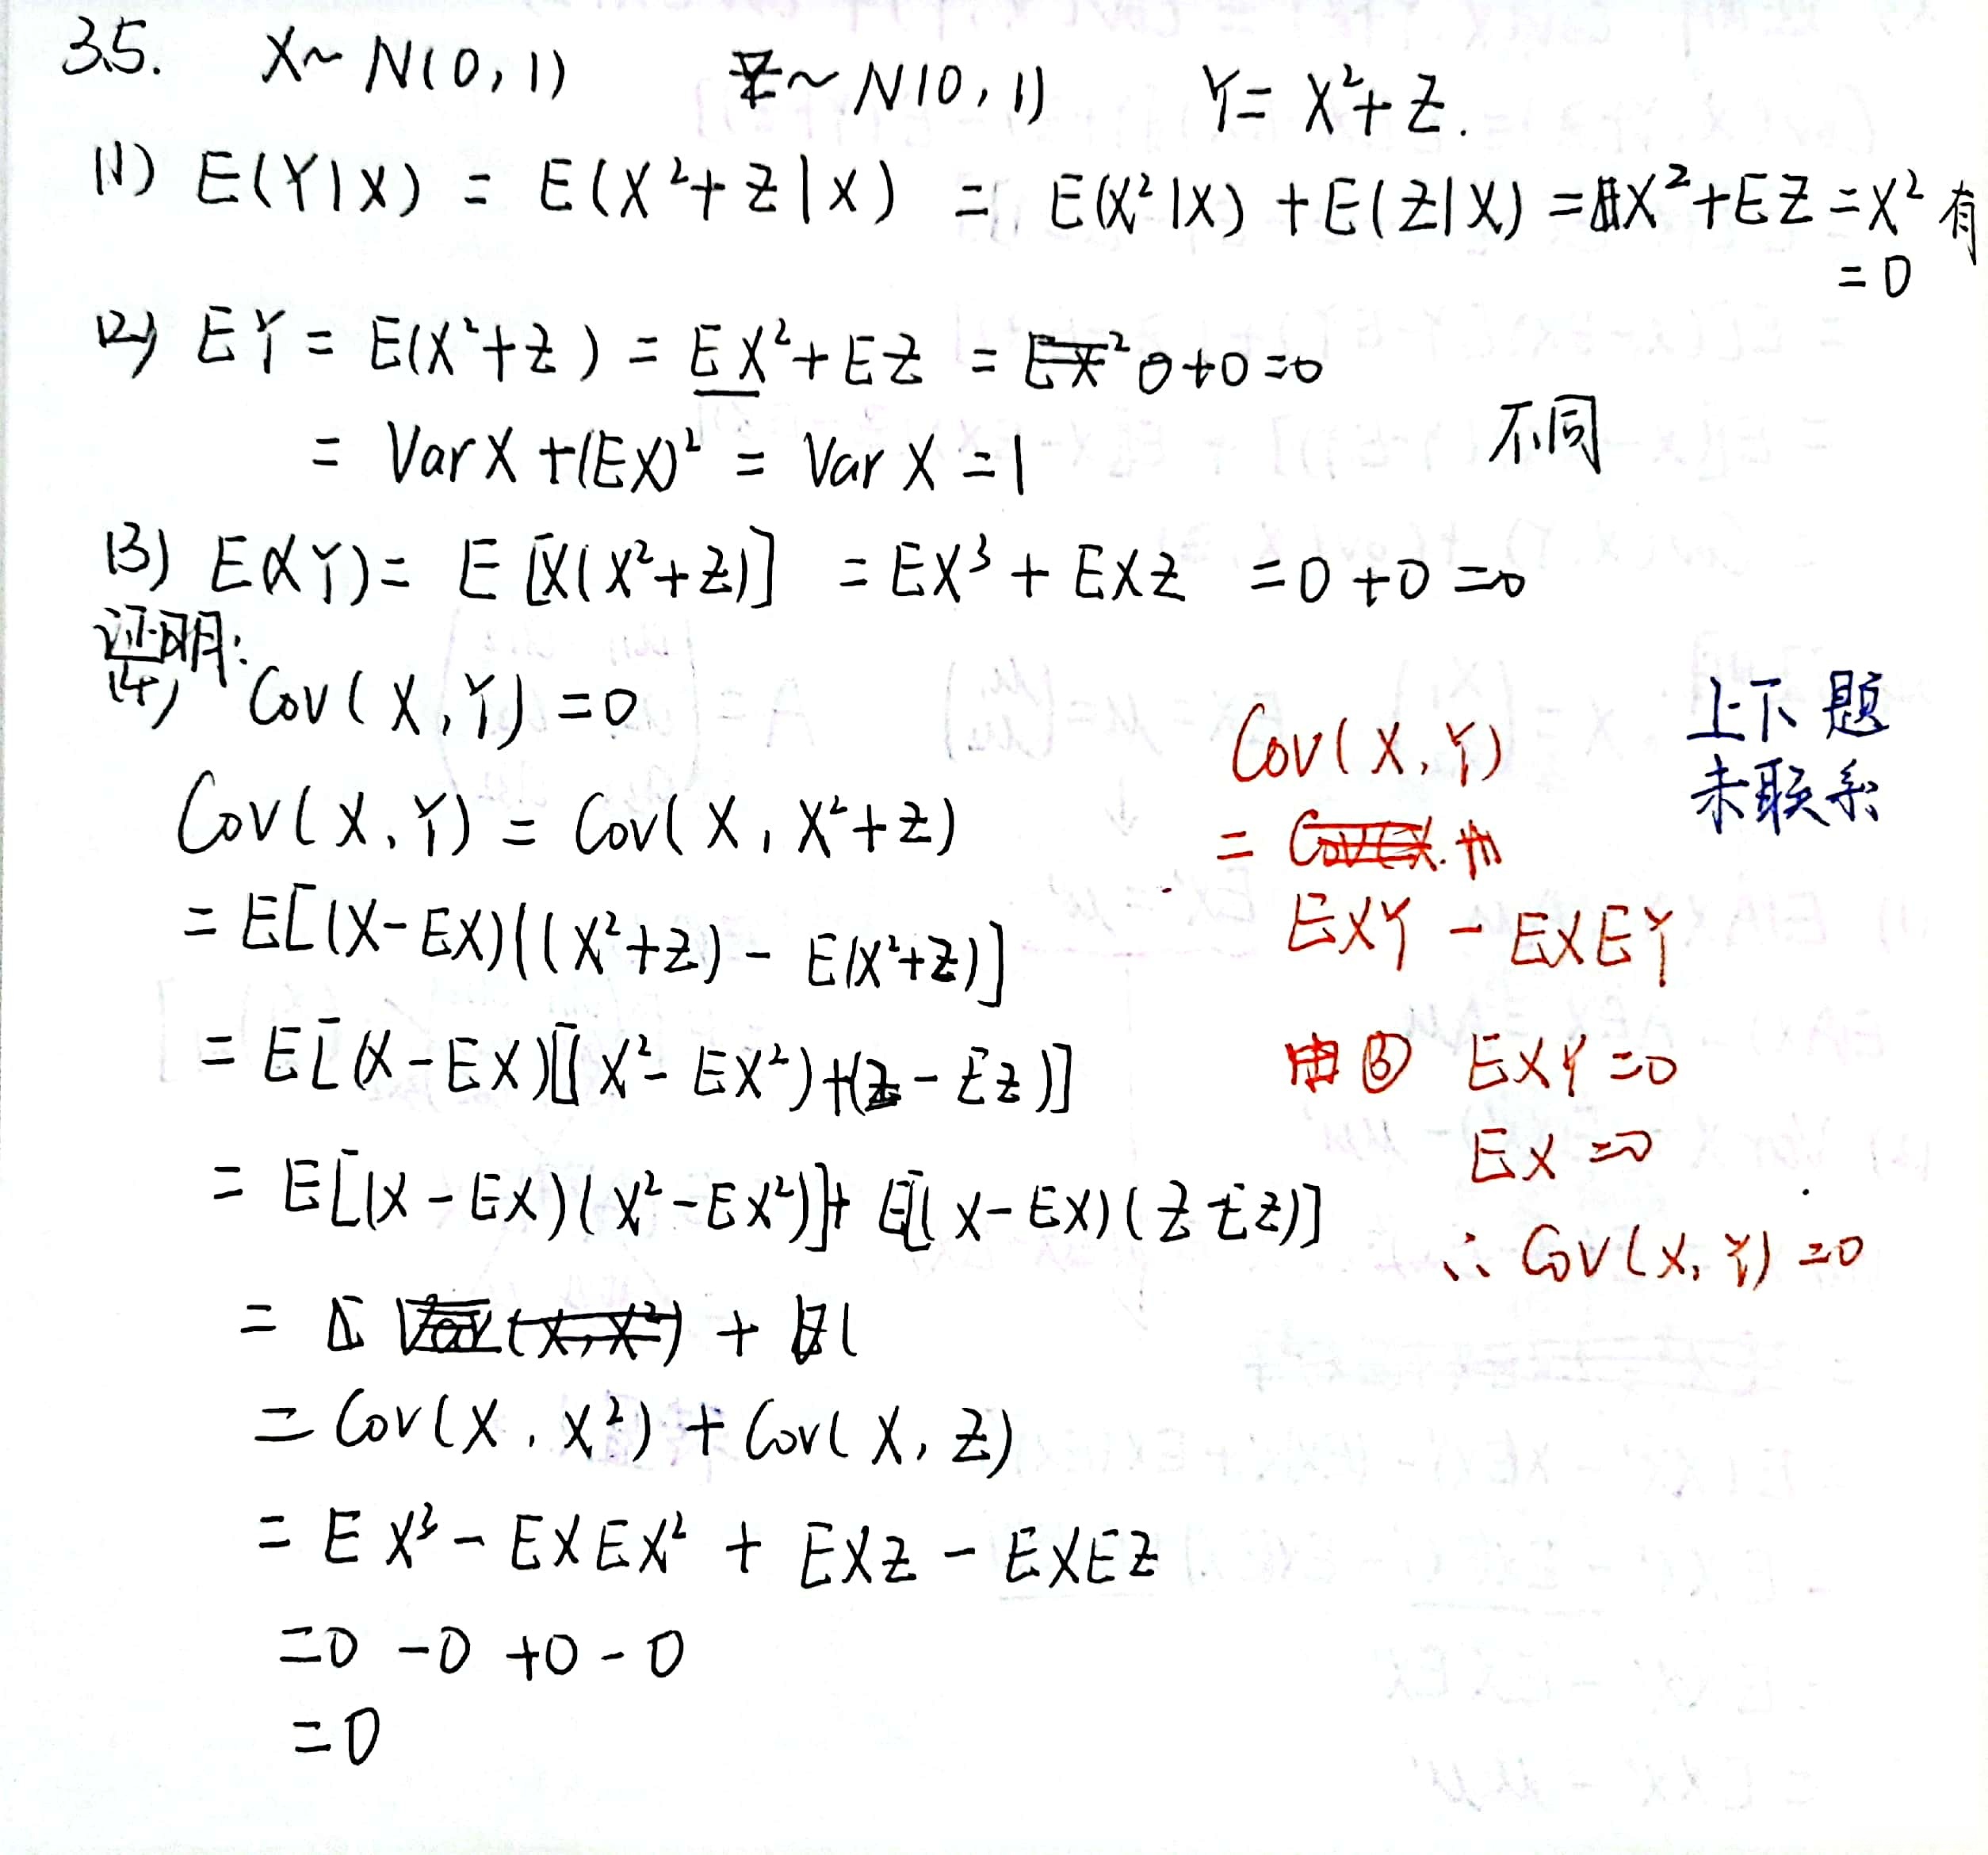 3.5. X~N(0,1) Z~N(0,1) Y=X²+Z.
(1) E(Y|X) = E(X²+Z|X) = E(X²|X)+E(Z|X)=X²+EZ=X² 有
=0
(2) EY=E(X²+Z)=EX²+EZ=EX²0+0=0
= VarX+(EX)²=VarX=1
不同
(3) E(XY)=E[X(X²+Z)]=EX³+EXZ=0+0=0
证明:
(4) Cov(X,Y)=0
Cov(X,Y)=Cov(X,X²+Z)
=E[(X-EX)((X²+Z)-E(X²+Z)]
=E[(X-EX)[(X²-EX²)+(Z-EZ)]
=E[(X-EX)(X²-EX²)]+E[(X-EX)(Z-EZ)]
= (X,X²) +
=Cov(X,X²)+Cov(X,Z)
=EX³-EXEX²+EXZ-EXEZ
=0-0+0-0
=0
Cov(X,Y)
=
EXY-EXEY
由③ EXY=0
EX=0
∴Cov(X,Y)=0
上下题
未联系